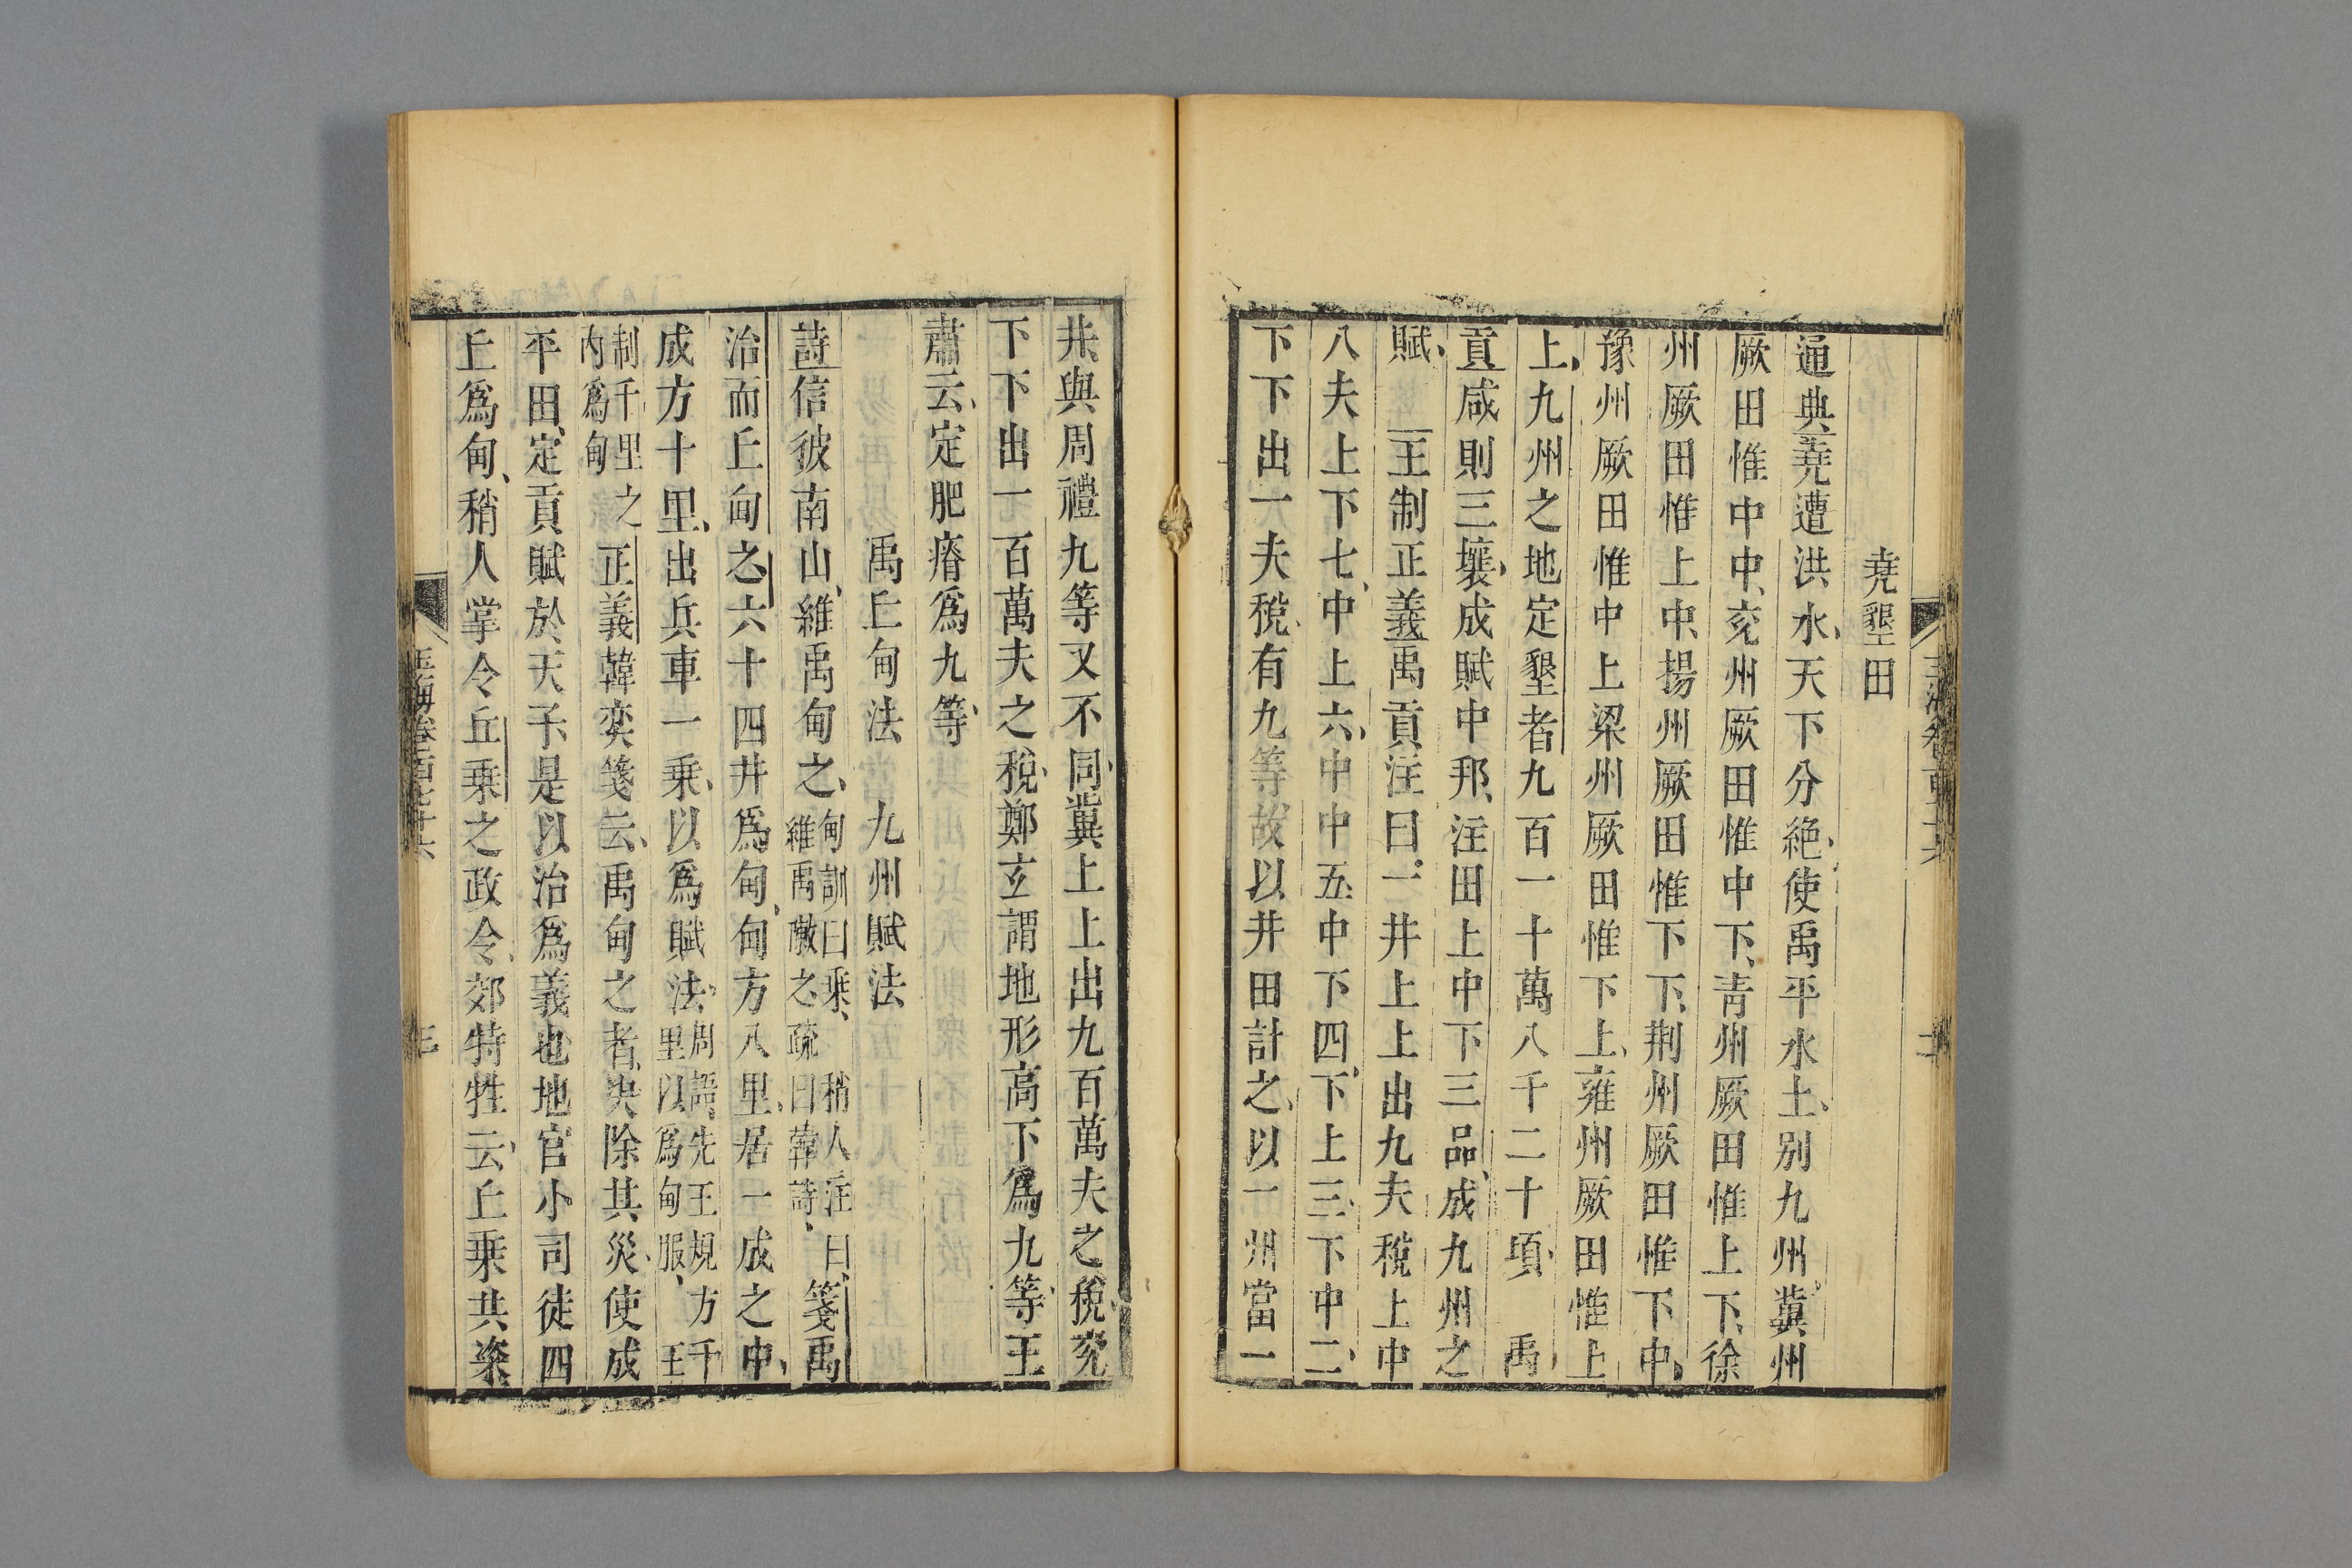 堯墾田
通典堯遭洪水天下分絶使禹平水土別九州冀州
厥田惟中中兗州厥田惟中下青州厥田惟上下徐
州厥田惟上中揚州厥田惟下下荆州厥田惟下中
豫州厥田惟中上梁州厥田惟下上雍州厥田惟上
上九州之地定墾者九百一十萬八千二十頃　禹
貢咸則三壤成賦中邦注田上中下三品成九州之
賦　王制正義禹貢注曰一井上上出九夫稅上中
八夫上下七中上六中中五中下四下上三下中二
下下出一夫稅有九等故以井田計之以一州當一
井與周禮九等又不同冀上上出九百萬夫之稅兗
下下出一百萬夫之稅鄭玄謂地形高下爲九等王
肅云定肥瘠爲九等
禹丘甸法　九州賦法
詩信彼南山維禹甸之甸訓曰乗　稍人注曰維禹敶之疏曰韓詩箋禹
治而丘甸之六十四井爲甸甸方八里居一成之中
成方十里出兵車一乗以爲賦法周語先王規方千里以爲甸服　王
制千里之內爲甸正義韓奕箋云禹甸之者決除其災使成
平田定貢賦於天子是以治爲義也地官小司徒四
丘爲甸稍人掌令丘乗之政令郊特牲云丘乗共粢
玉海卷百七十六
三